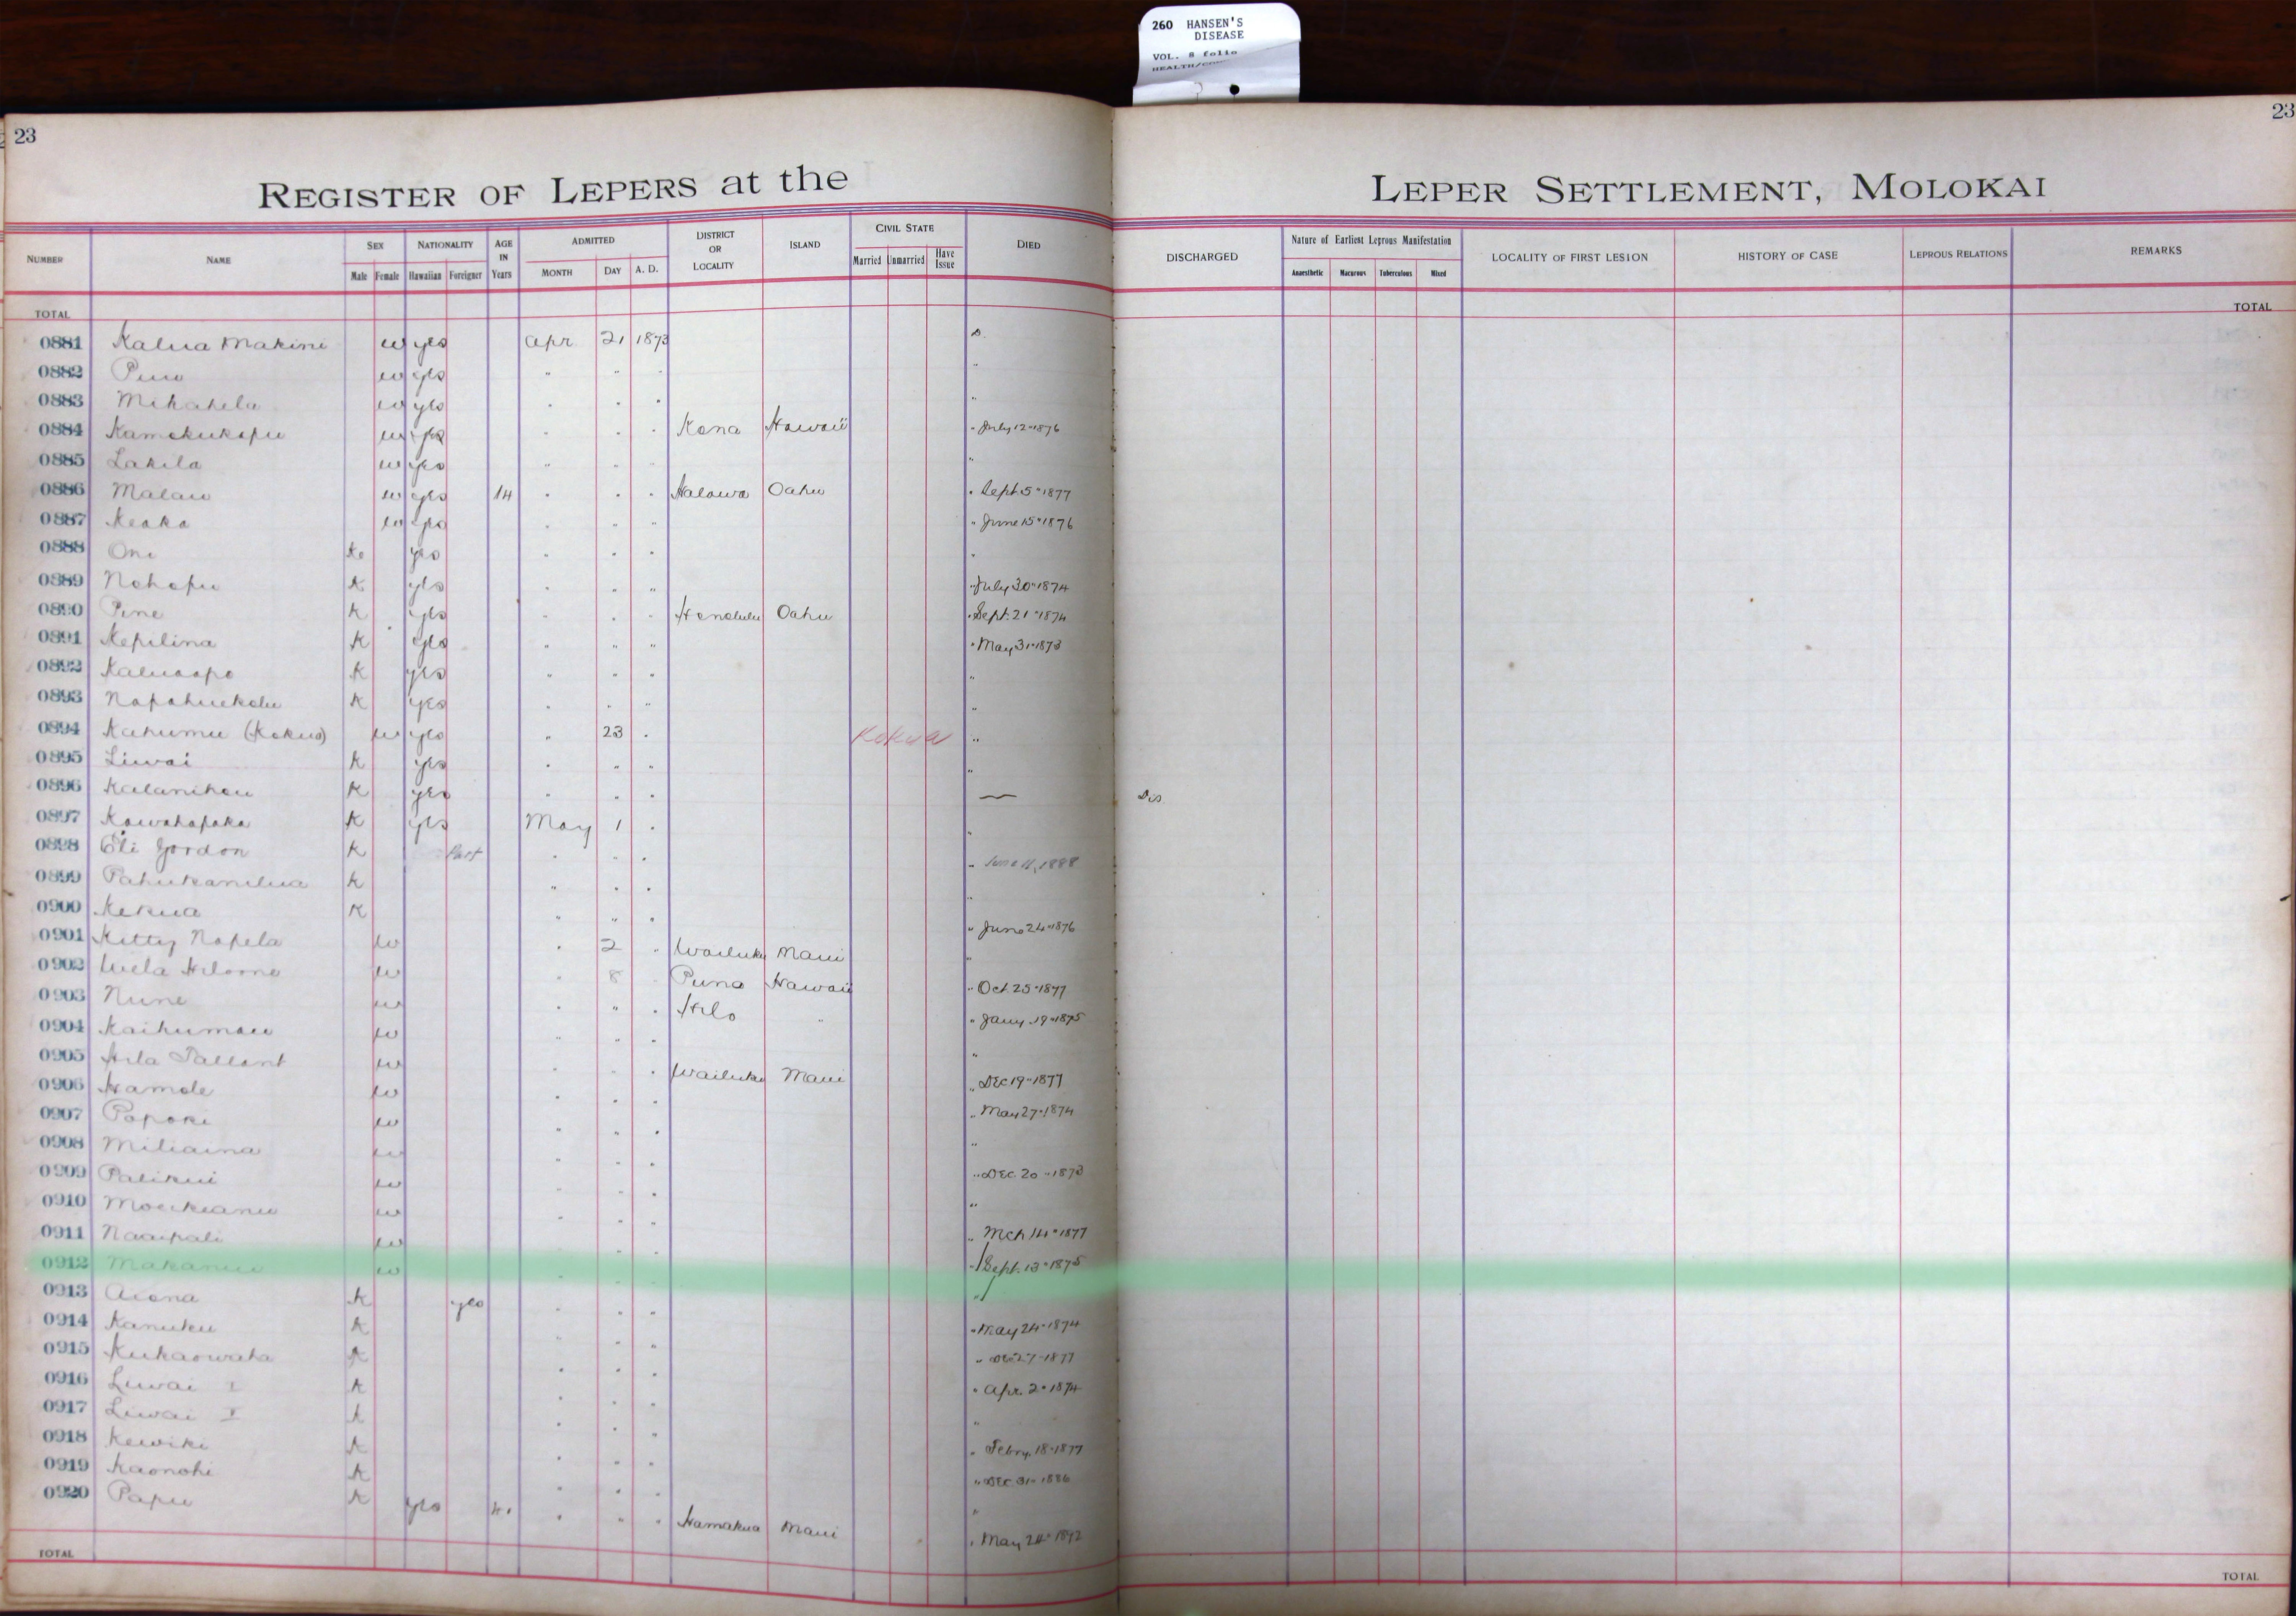 260 HANSEN'S
DISEASE
VOL. 8 folio
23
23
REGISTER OF LEPERS at the LEPER SETTLEMENT, MOLOKAI
NUMBER NAME SEX NATIONALITY AGE IN Years ADMITTED DISTRICT OR LOCALITY ISLAND CIVIL STATE DIED DISCHARGED Nature of Earliest Leprous Manifestation LOCALITY OF FIRST LESION HISTORY OF CASE LEPROUS RELATIONS REMARKS
Male Female Hawaiian Foreigner MONTH DAY A. D. Married Unmarried Have Issue Anaesthetic Macurous Tuberculous Mixed
TOTAL TOTAL
0881 Kalua Makini w yes Apr 21 1873 D.
0882 w yes " " " "
0883 Mikahela w yes " " " "
0884 Kamokukapu w yes " " " Kona Hawaii " July 12" 1876
0885 Lakila w yes " " " "
0886 Malau w yes 14 " " " Halawa Oahu " Sept. 5" 1877
0887 Keaka w yes " " " " June 15" 1876
0888 Oni K yes " " " "
0889 Nohopu K yes " " " " July 30" 1874
0890 Pine K yes " " " Honolulu Oahu " Sept. 21" 1874
0891 Kepilina K yes " " " " May 31" 1873
0892 Kaluaapo K yes " " " "
0893 Napahuekolu K yes " " " "
0894 Kahumu (Kokua) w yes " 23 " Kokua "
0895 Liwai K yes " " " "
0896 Kalanihou K yes " " " — Dis
0897 Kawahapaka K yes May 1 " "
0898 Eli Gordon K Part " " " " June 11, 1888
0899 Pahukanilua K " " " "
0900 Kekua K " " " " June 24" 1876
0901 Kitty Napela w " 2 " Wailuku Maui "
0902 w " 8 " Puna Hawaii " Oct. 25" 1877
0903 Nune w " " " Hilo " " Jany. 19" 1875
0904 Kaihumau w " " " "
0905 Hila Tallant w " " " Wailuku Maui " Dec 19" 1877
0906 Hamole w " " " " May 27" 1874
0907 Papoki w " " " "
0908 Miliaina w " " " " Dec. 20" 1873
0909 Palikui w " " " "
0910 w " " " " Mch 14" 1877
0911 Naaipali w " " " " Sept. 13" 1875
0912 Makanui w " " " "
0913 Aiona K yes " " " " May 24" 1874
0914 Kanuku K " " " " Dec 27" 1877
0915 Kukaowaha K " " " " Apr. 2" 1874
0916 Liwai I K " " " "
0917 Liwai K " " " " Febry. 18" 1877
0918 Kewiki K " " " " Dec. 31" 1886
0919 Kaonohi K " " " "
0920 Papu K yes " " " Hamakua Maui " May 24" 1892
TOTAL TOTAL